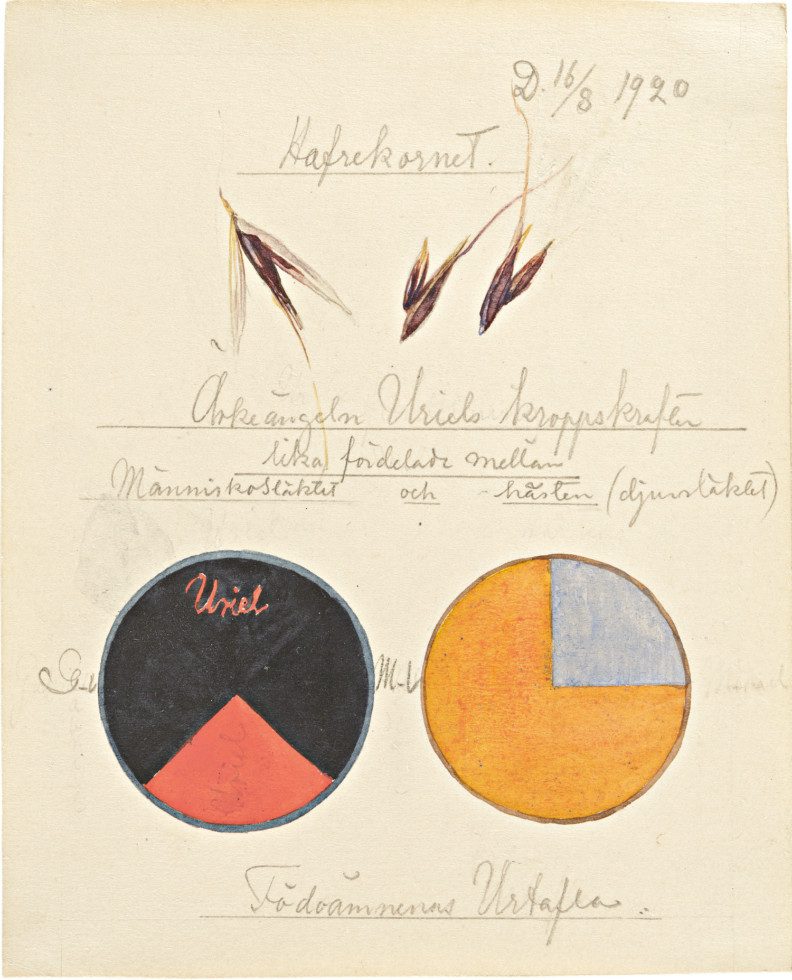 D. 16/8 1920
Hafrekornet.
Ärkeängeln Uriels kroppskrafter
lika fördelade mellan
Människosläktet och hästen (djursläktet)
Uriel
G-v M-v
Uriel
Födoämnenas Urtafla.